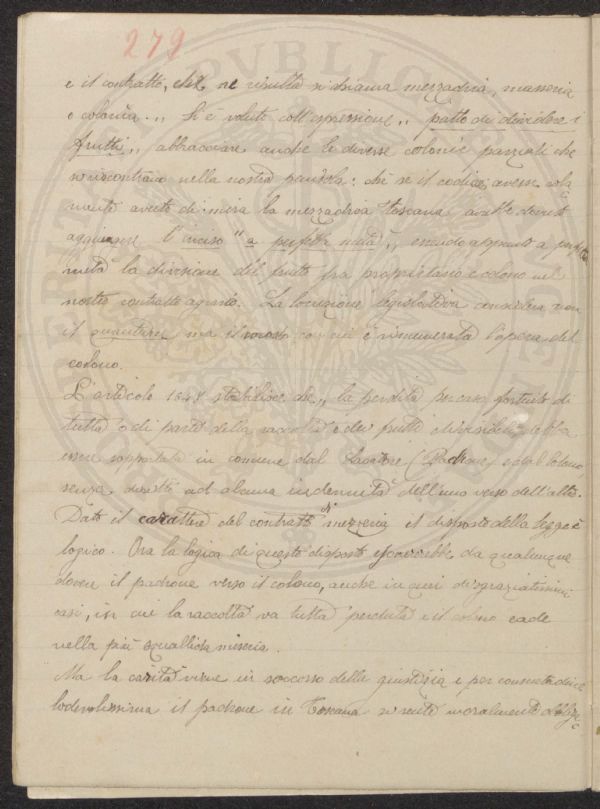 279
e il contratto, che ne risulta si chiama mezzadria, masseria
o colonia. „ Si è voluto coll'espressione „ patto di dividere i
frutti „ abbracciare anche le diverse colonie parziali che
si riscontrano nella nostra penisola: chè se il codice avesse sola
mente avuto di mira la mezzadria Toscana, avrebbe dovuto
aggiungere l'inciso " a perfetta metà „, essendo appunto a perfetta
metà la divisione del frutto fra proprietario e colono nel
nostro contratto agrario. La locuzione legislativa considera non
il quantum ma il modo con cui è rimunerata l'opera del
colono.
L'articolo 1648 stabilisce che „ la perdita per caso fortuito di
tutta o di parte della raccolta e dei frutti divisibili debba
essere sopportata in comune dal locatore (Padrone) e dal colono
senza diritto ad alcuna indennità dell'uno verso dell'altro.
Dato il carattere del contratto di mezzeria il disposto della legge è
logico. Ora la logica di questo disposto esonererebbe da qualunque
dovere il padrone verso il colono, anche in quei disgraziatissimi
casi, in cui la raccolta va tutta perduta e il colono cade
nella più squallida miseria.
Ma la carità viene in soccorso della giustizia e per consuetudine
lodevolissima il padrone in Toscana si sente moralmente